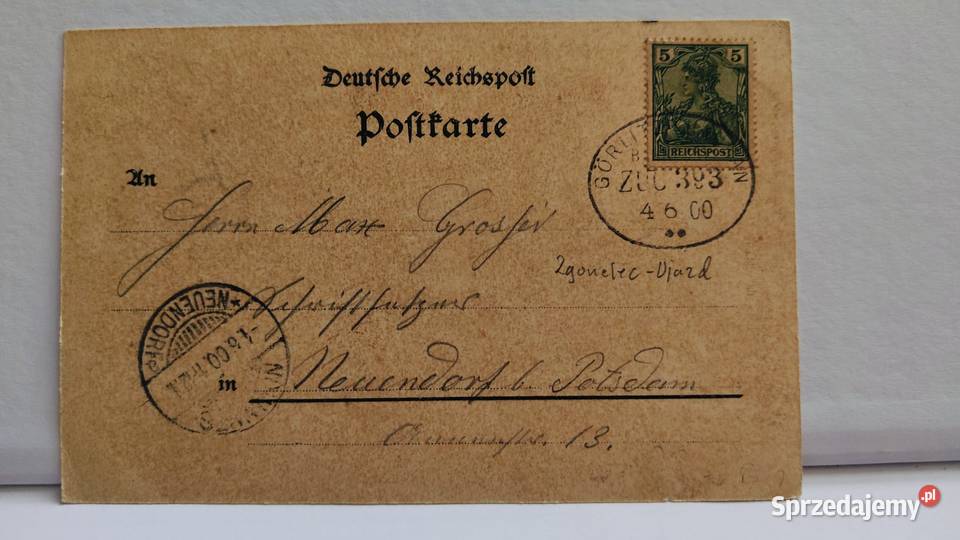 Deutsche Reichspost
Postkarte
5 5
REICHSPOST
ZUG 393
4 6 00
An
Herrn Max Grosser
Zgorzelec - Ujazd
Schriftsetzer
NEUENDORF
in Neuendorf b. Potsdam
13.
Sprzedajemy.pl